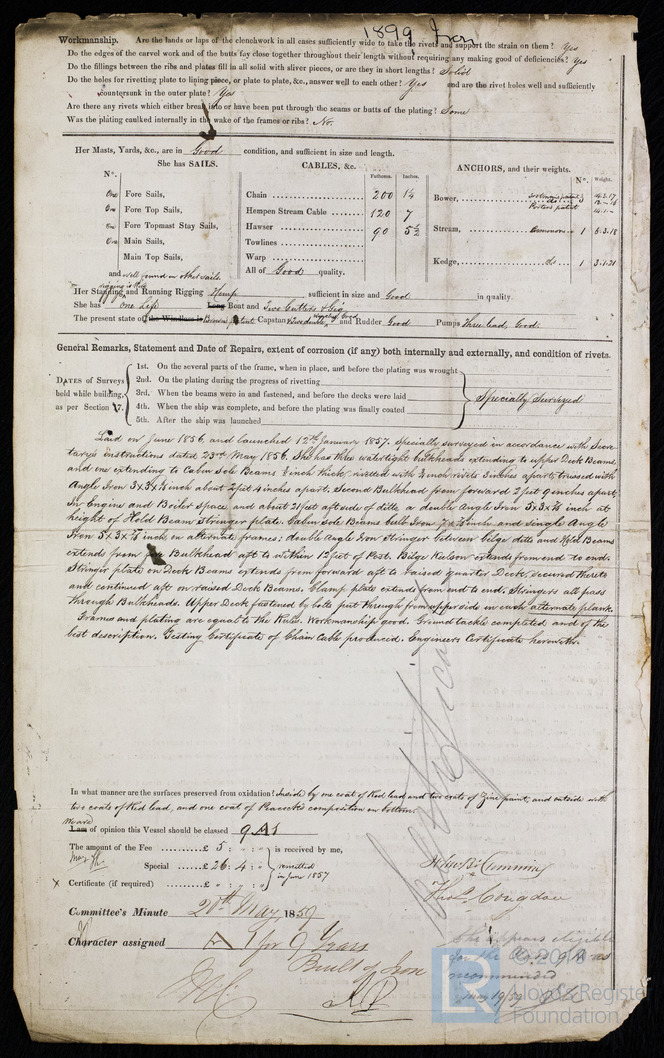 1899 Iron
Workmanship. Are the lands or laps of the clenchwork in all cases sufficiently wide to take the rivets and support the strain on them? Yes
Do the edges of the carvel work and of the butts fay close together throughout their length without requiring any making good of deficiencies? Yes
Do the fillings between the ribs and plates fill in all solid with sliver pieces, or are they in short lengths? Solid
Do the holes for rivetting plate to lining piece, or plate to plate, &c., answer well to each other? Yes and are the rivet holes well and sufficiently
countersunk in the outer plate? Yes
Are there any rivets which either break into or have been put through the seams or butts of the plating? Some
Was the plating caulked internally in the wake of the frames or ribs? No.
Her Masts, Yards, &c., are in Good condition, and sufficient in size and length.
She has SAILS.
CABLES, &c.
ANCHORS, and their weights.
No.
Fathoms. Inches.
No. Weight.
One Fore Sails,
One Fore Top Sails,
One Fore Topmast Stay Sails,
One Main Sails,
Main Top Sails,
and well found in other sails
Chain 200 1¼
Hempen Stream Cable 120 7
Hawser 90 5½
Towlines
Warp
All of Good quality.
Bower, 3
Porters patent
Stream, Common 1 6.3.18
Kedge, do 1 3.1.21
Her Standing and Running Rigging Hemp sufficient in size and Good in quality.
rigging is
She has one Life Long Boat and Two Cutters & Gig
The present state of the Windlass is Capstan and Rudder Good Pumps Three lead, Good.
General Remarks, Statement and Date of Repairs, extent of corrosion (if any) both internally and externally, and condition of rivets.
DATES of Surveys
held while building,
as per Section 17.
1st. On the several parts of the frame, when in place, and before the plating was wrought
2nd. On the plating during the progress of rivetting
3rd. When the beams were in and fastened, and before the decks were laid
4th. When the ship was complete, and before the plating was finally coated
5th. After the ship was launched
Specially Surveyed
Laid on June 1856, and launched 12th January 1857. Specially surveyed in accordance with Secre
tarys instructions dated 23rd May 1856. She has three watertight bulkheads extending to upper Deck Beams,
and one extending to Cabin Sole Beams inch thick, rivetted with inch rivets 3 inches apart, trussed with
Angle Iron 3x3x inch about 2 feet 4 inches apart. Second Bulkhead from forward 2 feet 9 inches apart,
In Engine and Boiler Space and about 21 feet aft side of ditto, a double Angle Iron 5x3x inch at
height of Hold Beam Stringer plate. Cabin Sole Beams Bulb Iron 7x inch and single Angle
Iron 5x3x inch on alternate frames: double Angle Iron Stringer between bilge ditto and Hold Beams
extends from fore Bulkhead aft to within 12 feet of Post. Bilge Keelson extends from end to end.
Stringer plate on Deck Beams extends from forward aft to Raised quarter Deck, secured thereto
and continued aft on raised Deck Beams. Clamp plate extends from end to end. Stringers all pass
through Bulkheads. Upper Deck fastened by bolts put through from upper side in each alternate plank.
Frames and plating are equal to the Rules. Workmanship good. Ground tackle completed and of the
best description. Testing Certificate of Chain Cable produced. Engineers Certificate herewith.
In what manner are the surfaces preserved from oxidation? Inside by one coat of Red lead and two coats of Zinc paint, and outside with
two coats of Red lead, and one coat of Peacock's composition on bottom.
We are
I am of opinion this Vessel should be classed 9 A 1
The amount of the Fee £ 5 : " : " is received by me,
Special £ 26 : 4 : " remitted
in June 1857
× Certificate (if required) £ " : " : "
Thos. Congdon
Committee's Minute 20th May 1859
Character assigned A 1 for 9 Years
Built of Iron
She appears eligible
for the Class 9 A 1 as
recommended
May 19/59
© 2018
LR
Lloyd's Register
Foundation